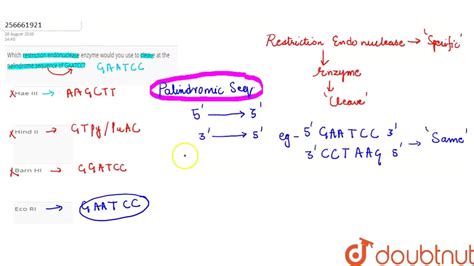 256661921
20 August 2020
Which restriction endonuclease enzyme would you use to cleave at the
palindrome sequence of GAATCC?
GAATCC
x Hae III → AAGCTT
x Hind II → GTPy/PuAC
x Barn HI → GGATCC
Eco RI → GAATCC
Palindromic Seq
5' → 3'
3' → 5'
Restriction Endonuclease → 'Specific'
Enzyme
'Cleave'
eg - 5' GAATCC 3'
3' CCTAAG 5' → 'Same'
doubtnut